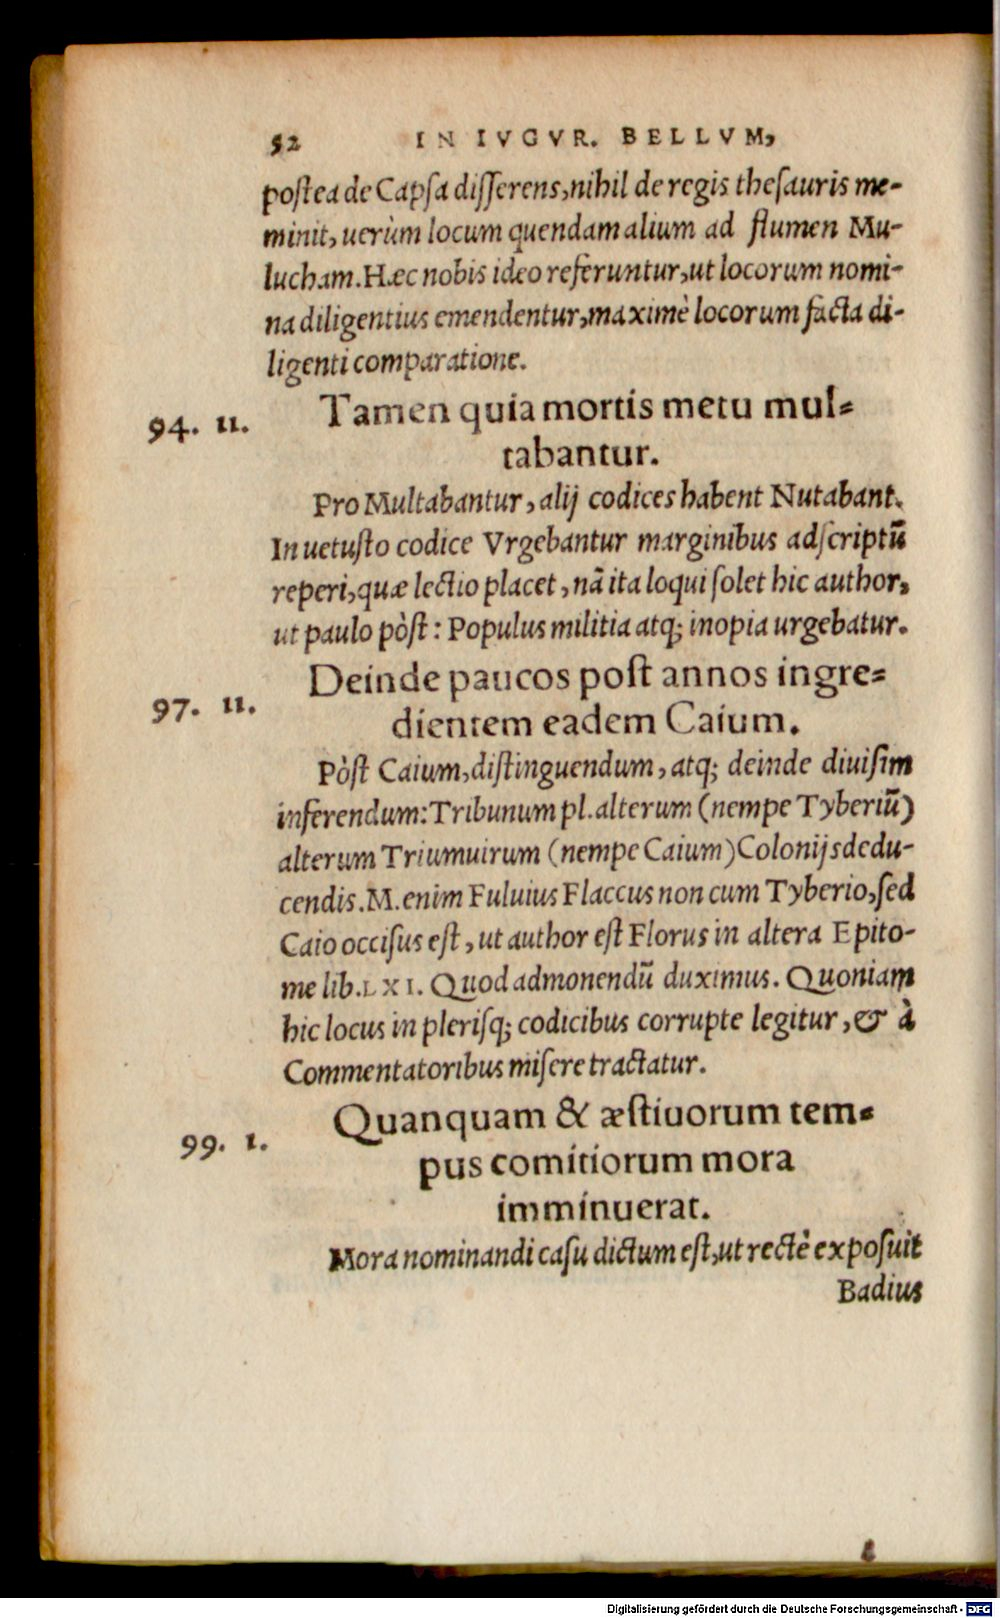 52 IN IVGVR. BELLVM,
postea de Capsa disserens, nihil de regis thesauris me-
minit, uerùm locum quendam alium ad flumen Mu-
lucham. Hæc nobis ideo referuntur, ut locorum nomi-
na diligentius emendentur, maximè locorum facta di-
ligenti comparatione.
94. 11. Tamen quia mortis metu mul-
tabantur.
Pro Multabantur, alij codices habent Nutabant.
In uetusto codice Vrgebantur marginibus adscriptū
reperi, quæ lectio placet, nā ita loqui solet hic author,
ut paulo pòst: Populus militia atq; inopia urgebatur.
97. 11. Deinde paucos post annos ingre-
dientem eadem Caium.
Pòst Caium, distinguendum, atq; deinde diuisim
inferendum: Tribunum pl. alterum (nempe Tyberiū)
alterum Triumuirum (nempe Caium) Colonijs dedu-
cendis. M. enim Fuluius Flaccus non cum Tyberio, sed
Caio occisus est, ut author est Florus in altera Epito-
me lib. LXI. Quod admonendū duximus. Quoniam
hic locus in plerisq; codicibus corrupte legitur, & à
Commentatoribus misere tractatur.
99. 1. Quanquam & æstiuorum tem-
pus comitiorum mora
imminuerat.
Mora nominandi casu dictum est, ut rectè exposuit
Badius
Digitalisierung gefördert durch die Deutsche Forschungsgemeinschaft - DFG